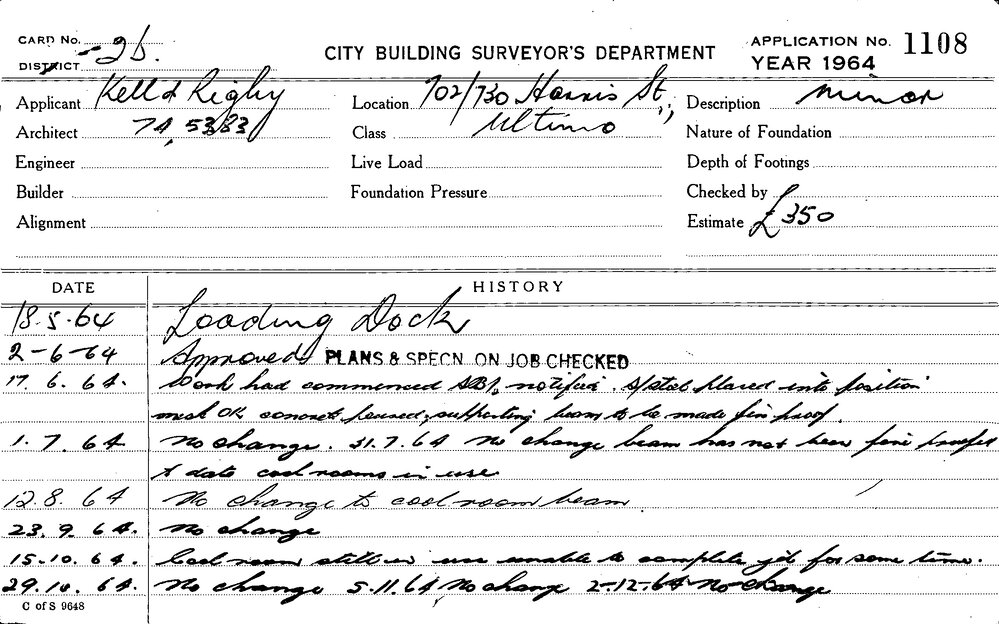 CARD No. 2b.
DISTRICT
CITY BUILDING SURVEYOR'S DEPARTMENT
APPLICATION No. 1108
YEAR 1964
Applicant Kell & Rigby
Location 702/730 Harris St,
Description minor
Architect 74, 5333
Class Ultimo
Nature of Foundation
Engineer
Live Load
Depth of Footings
Builder
Foundation Pressure
Checked by
Alignment
Estimate £350
DATE
HISTORY
18.5.64 Loading Dock
2-6-64 Approved PLANS & SPECN. ON JOB CHECKED
17.6.64. Work had commenced notified. S/steel placed into position
mesh OK concrete poured, supporting beam to be made fire proof.
1.7.64 No change. 31.7.64 No change beam has not been fire proofed
to date cool rooms in use
12.8.64 No change to cool room beam
23.9.64. No change
15.10.64. Cool room still in use unable to complete job for some time.
29.10.64. No change 5.11.64 No change 2-12-64 No change
C of S 9648